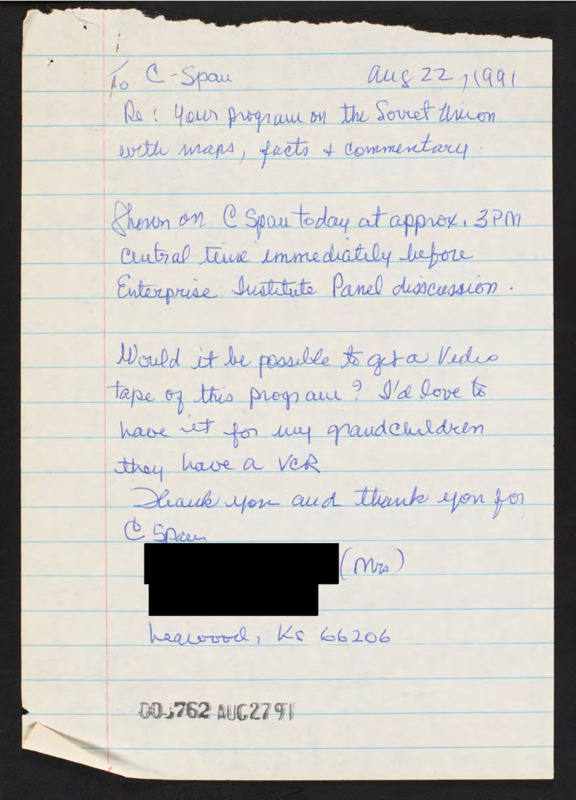 To C-Span Aug 22, 1991
Re: Your program on the Soviet Union
with maps, facts + commentary.
Shown on C Span today at approx. 3PM
central time immediately before
Enterprise Institute Panel disscussion.
Would it be possible to get a Video
tape of this program? I'd love to
have it for my grandchildren
they have a VCR
Thank you and thank you for
C Span
(Mrs)
Leawood, Ks 66206
762 AUG 27 91